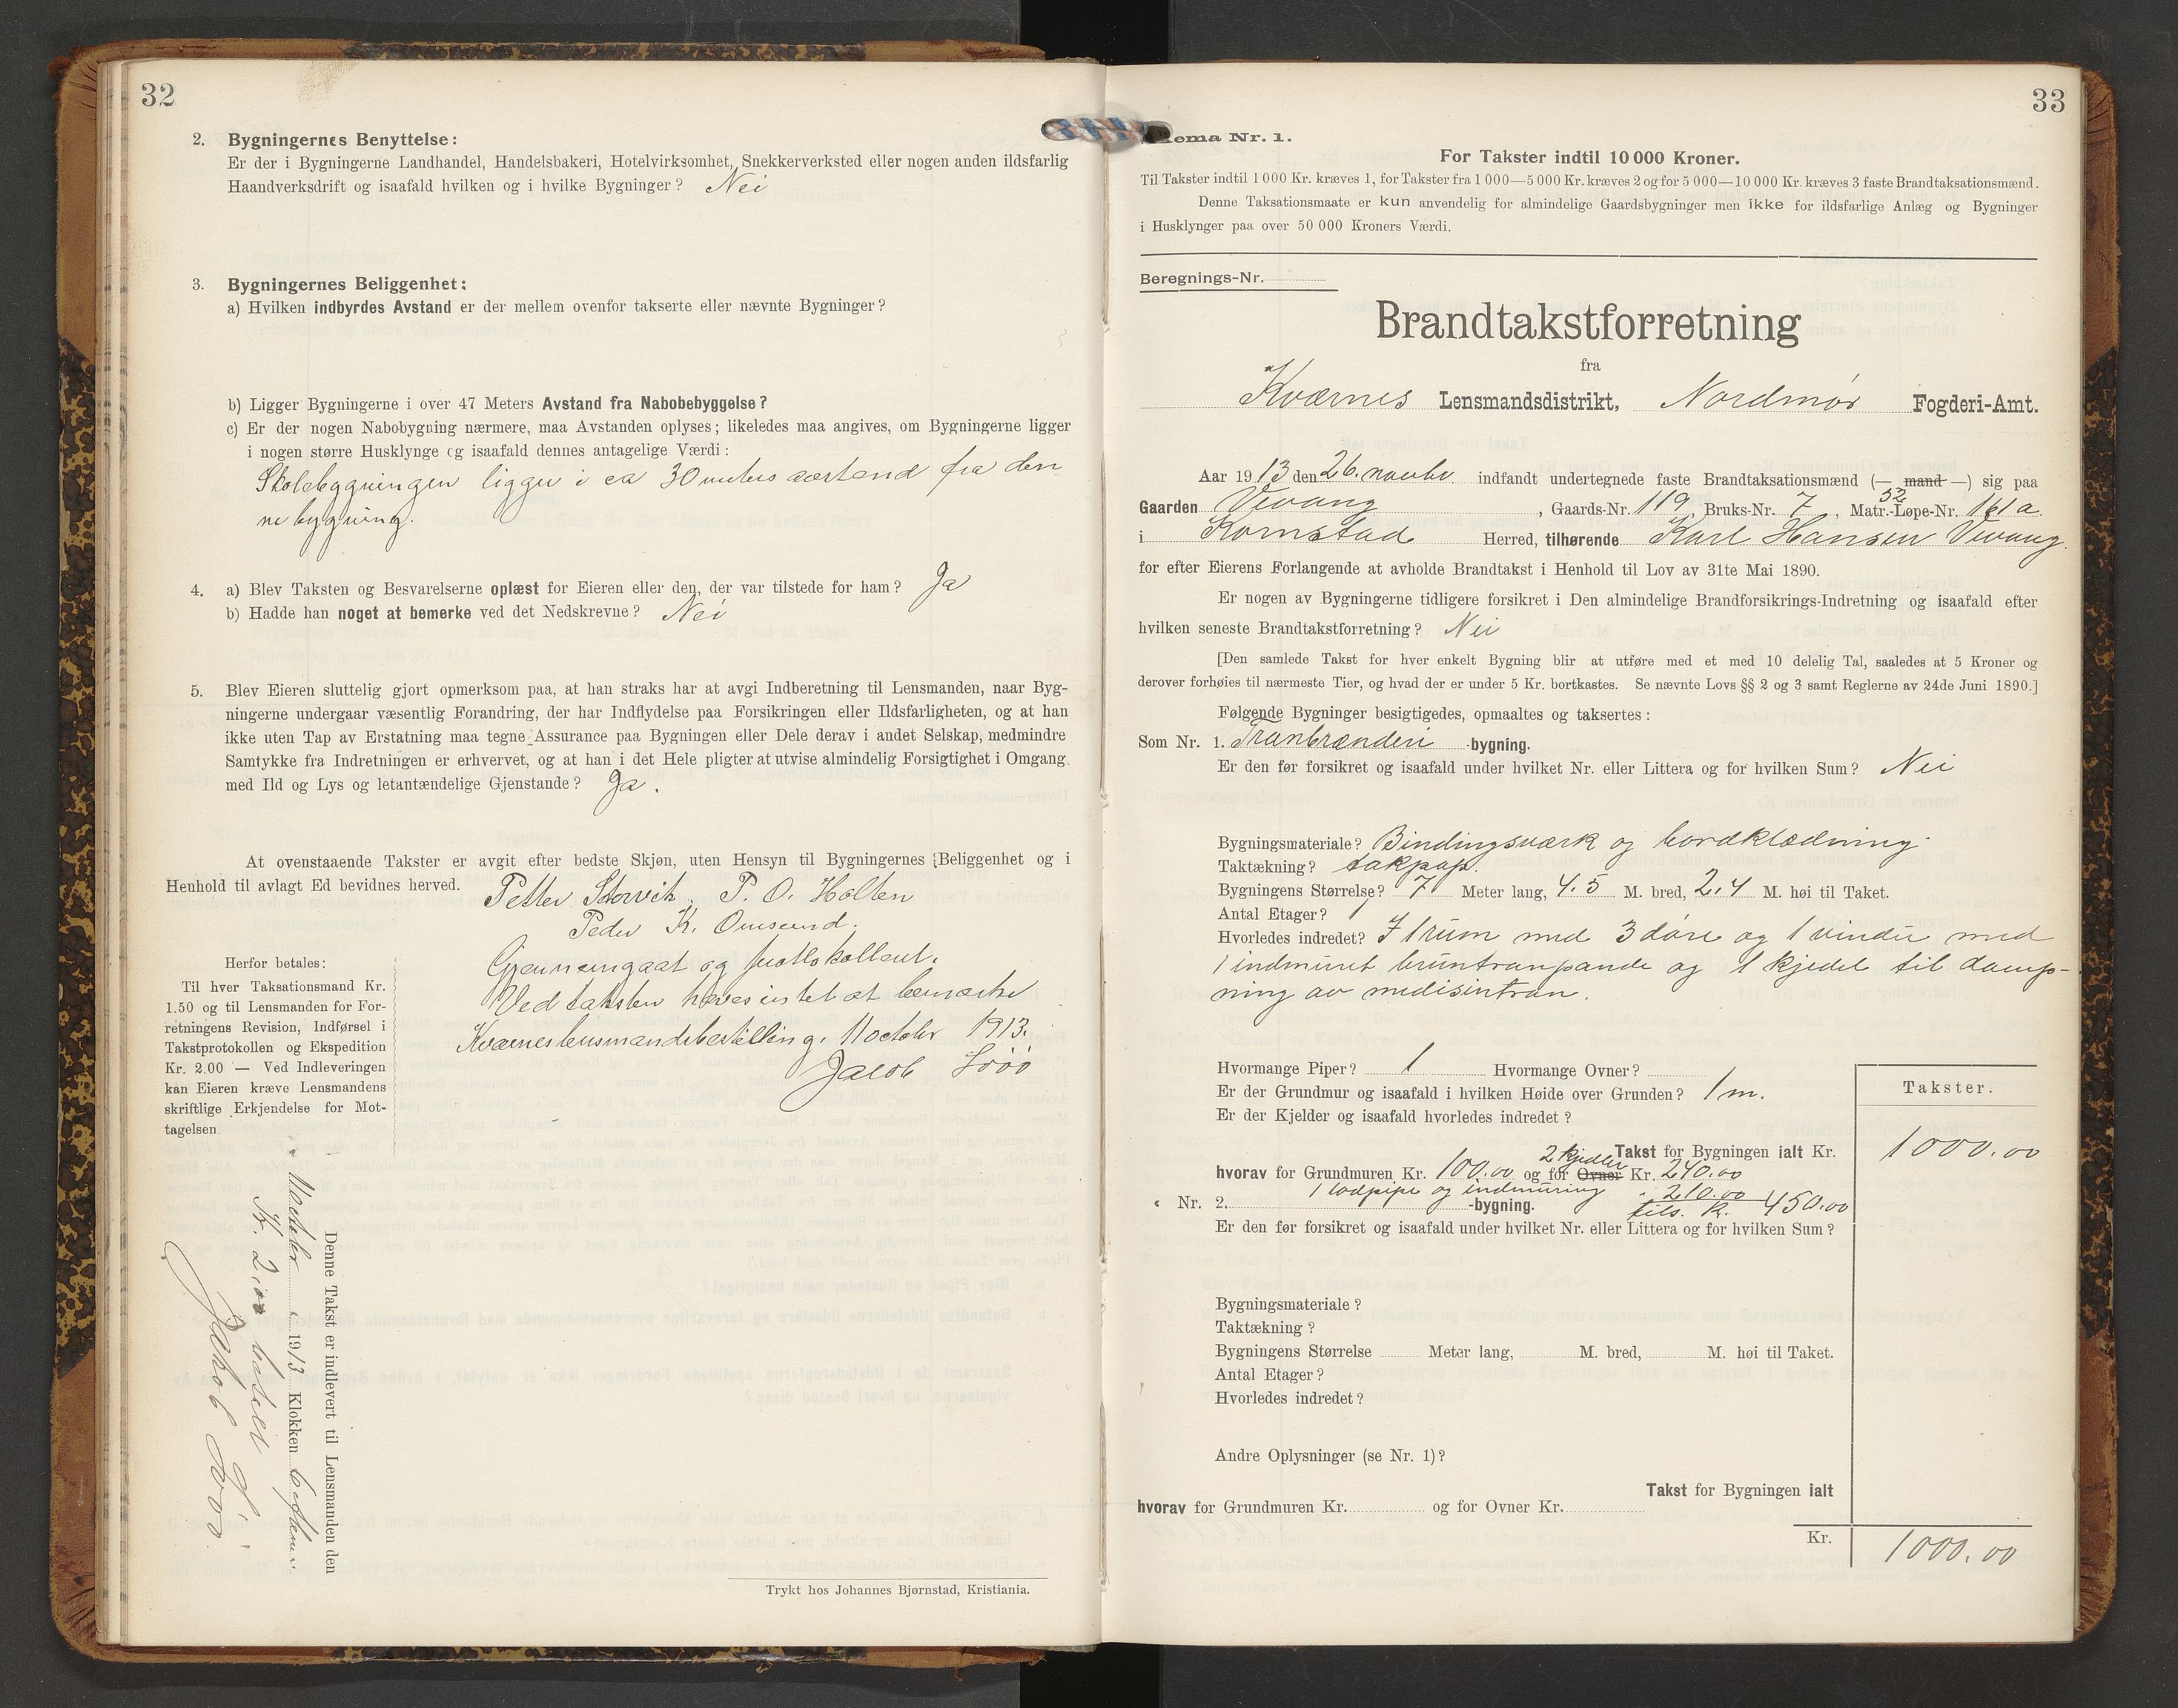 32
2. Bygningernes Benyttelse:
Er der i Bygningerne Landhandel, Handelsbakeri, Hotelvirksomhet, Snekkerverksted eller nogen anden ildsfarlig
Haandverksdrift og isaafald hvilken og i hvilke Bygninger? Nei
3. Bygningernes Beliggenhet:
a) Hvilken indbyrdes Avstand er der mellem ovenfor takserte eller nævnte Bygninger?
b) Ligger Bygningerne i over 47 Meters Avstand fra Nabobebyggelse?
c) Er der nogen Nabobygning nærmere, maa Avstanden oplyses; likeledes maa angives, om Bygningerne ligger
i nogen større Husklynge og isaafald dennes antagelige Værdi:
Skolebygningen ligger i ca 30 meters avstand fra den
ne bygning.
4. a) Blev Taksten og Besvarelserne oplæst for Eieren eller den, der var tilstede for ham? Ja
b) Hadde han noget at bemerke ved det Nedskrevne? Nei
5. Blev Eieren sluttelig gjort opmerksom paa, at han straks har at avgi Indberetning til Lensmanden, naar Byg-
ningerne undergaar væsentlig Forandring, der har Indflydelse paa Forsikringen eller Ildsfarligheten, og at han
ikke uten Tap av Erstatning maa tegne Assurance paa Bygningen eller Dele derav i andet Selskap, medmindre
Samtykke fra Indretningen er erhvervet, og at han i det Hele pligter at utvise almindelig Forsigtighet i Omgang
med Ild og Lys og letantændelige Gjenstande? Ja.
At ovenstaaende Takster er avgit efter bedste Skjøn, uten Hensyn til Bygningernes Beliggenhet og i
Henhold til avlagt Ed bevidnes herved.
Petter Storvik. P. O. Holten
Peder K. Omsund.
Gjennemgaat og protokollert.
Ved taksten haves intet at bemerke
Kværnes lensmandsbestilling, 11 october 1913.
Jacob
Herfor betales:
Til hver Taksationsmand Kr.
1.50 og til Lensmanden for For-
retningens Revision, Indførsel i
Takstprotokollen og Ekspedition
Kr. 2.00 — Ved Indleveringen
kan Eieren kræve Lensmandens
skriftlige Erkjendelse for Mot-
tagelsen.
Denne Takst er indlevert til Lensmanden den
1913 Klokken 6
Kr. 2.00 betalt
Jakob
Trykt hos Johannes Bjørnstad, Kristiania.
33
ema Nr. 1.
For Takster indtil 10 000 Kroner.
Til Takster indtil 1 000 Kr. kræves 1, for Takster fra 1 000—5 000 Kr. kræves 2 og for 5 000—10 000 Kr. kræves 3 faste Brandtaksationsmænd.
Denne Taksationsmaate er kun anvendelig for almindelige Gaardsbygninger men ikke for ildsfarlige Anlæg og Bygninger
i Husklynger paa over 50 000 Kroners Værdi.
Beregnings-Nr.
Brandtakstforretning
fra
Kværnes Lensmandsdistrikt, Nordmør Fogderi-Amt.
Aar 1913 den 26. indfandt undertegnede faste Brandtaksationsmænd (— mand —) sig paa
Gaarden Vevang, Gaards-Nr. 119, Bruks-Nr. 7, Matr.-Løpe-Nr. 52 161a
i Kornstad Herred, tilhørende Karl Hansen Vevang
for efter Eierens Forlangende at avholde Brandtakst i Henhold til Lov av 31te Mai 1890.
Er nogen av Bygningerne tidligere forsikret i Den almindelige Brandforsikrings-Indretning og isaafald efter
hvilken seneste Brandtakstforretning? Nei
[Den samlede Takst for hver enkelt Bygning blir at utføre med et med 10 delelig Tal, saaledes at 5 Kroner og
derover forhøies til nærmeste Tier, og hvad der er under 5 Kr. bortkastes. Se nævnte Lovs §§ 2 og 3 samt Reglerne av 24de Juni 1890.]
Følgende Bygninger besigtigedes, opmaaltes og taksertes:
Som Nr. 1. Tranbrænderi -bygning.
Er den før forsikret og isaafald under hvilket Nr. eller Littera og for hvilken Sum? Nei
Bygningsmateriale? Bindingsværk og bordklædning.
Taktækning? takpap.
Bygningens Størrelse? 7 Meter lang, 4.5 M. bred, 2.4 M. høi til Taket.
Antal Etager? 1
Hvorledes indredet? I 1 rum med 3 døre og 1 vindu med
1 indmuret bruntranpande og 1 kjedel til damp-
ning av medisintran.
Hvormange Piper? 1 Hvormange Ovner?
Er der Grundmur og isaafald i hvilken Høide over Grunden? 1 m.
Er der Kjelder og isaafald hvorledes indredet?
Takster.
Takst for Bygningen ialt Kr. 1000.00
hvorav for Grundmuren Kr. 100.00 og for Ovner 2 kjedler Kr. 240.00
1 lodpipe og indmuring " 210.00
Nr. 2. -bygning. tils. K. 450.00
Er den før forsikret og isaafald under hvilket Nr. eller Littera og for hvilken Sum?
Bygningsmateriale?
Taktækning?
Bygningens Størrelse Meter lang, M. bred, M. høi til Taket.
Antal Etager?
Hvorledes indredet?
Andre Oplysninger (se Nr. 1)?
Takst for Bygningen ialt
hvorav for Grundmuren Kr. og for Ovner Kr.
Kr. 1000.00